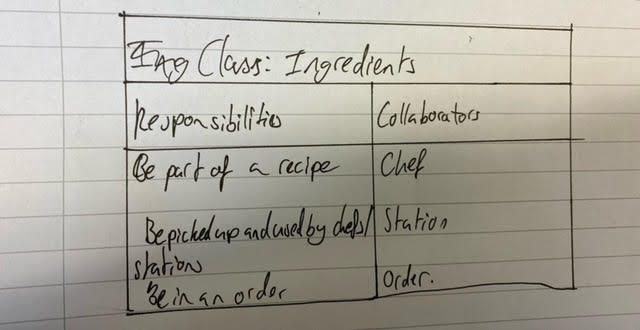 Class: Ingredients
Responsibilities Collaborators
Be part of a recipe Chef
Be picked up and used by chefs/ Station
stations
Be in an order Order.